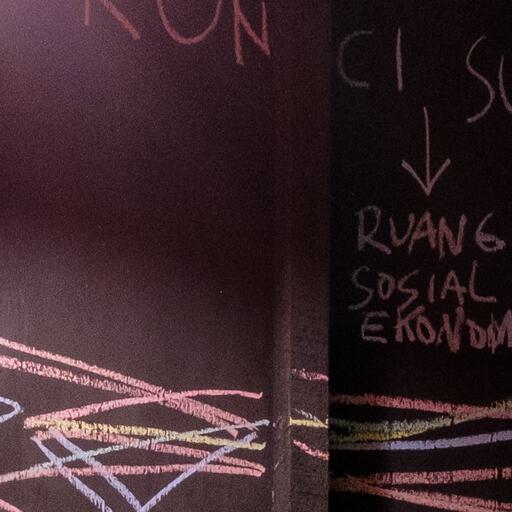 KUN
CI SU
RUANG
SOSIAL
EKONOM